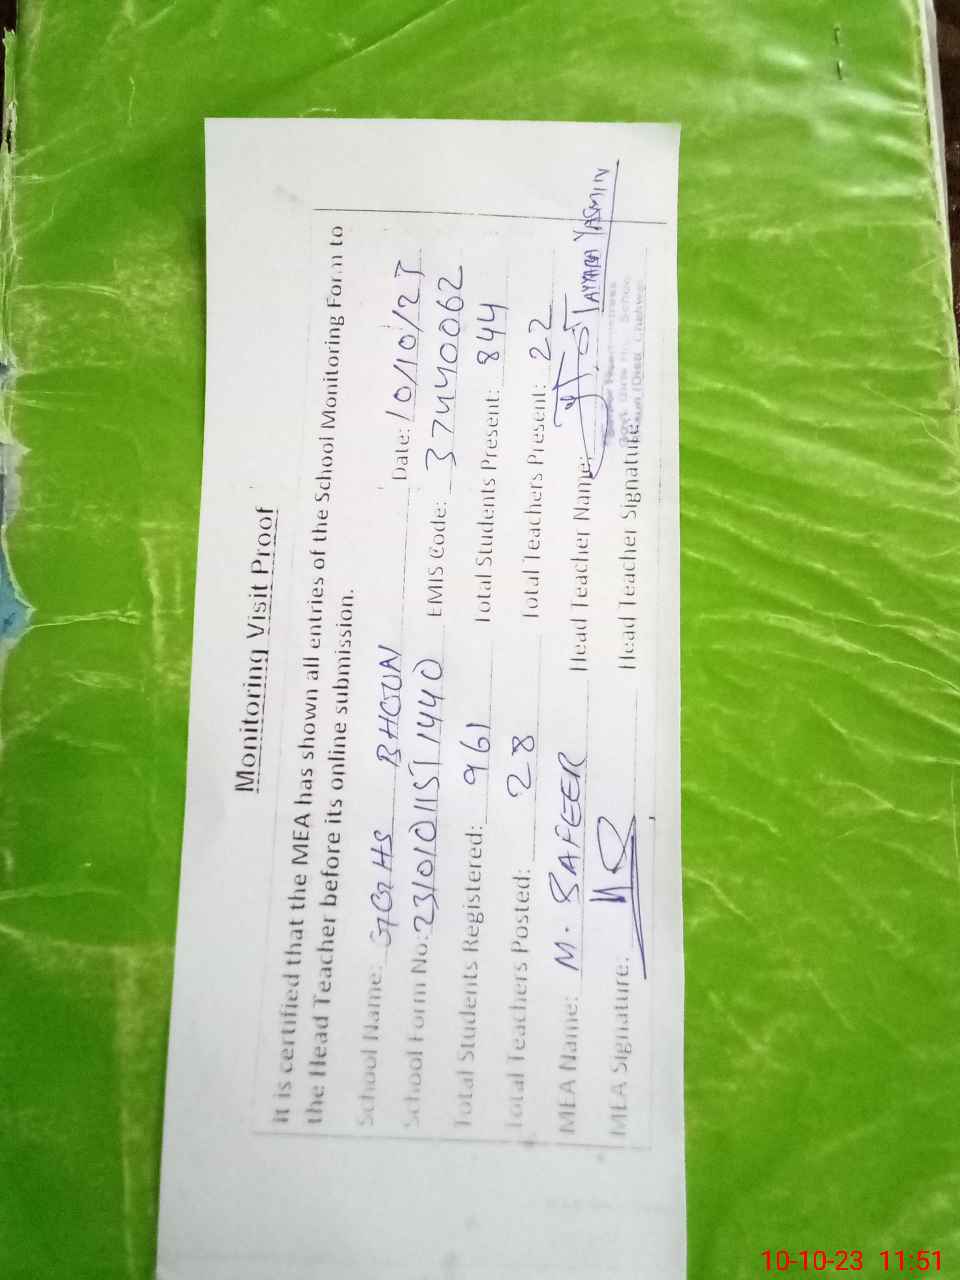 Monitoring Visit Proof
It is certified that the MEA has shown all entries of the School Monitoring Form to
the Head Teacher before its online submission.
School Name: GGHS BHOUN Date: 10/10/23
School Form No: 23101011511440 EMIS Code: 37440062
Total Students Registered: 961 Total Students Present: 844
Total Teachers Posted: 28 Total Teachers Present: 22
MEA Name: M. SAFEER Head Teacher Name: TAYYABA YASMIN
MEA Signature: Head Teacher Signature:
10-10-23 11:51